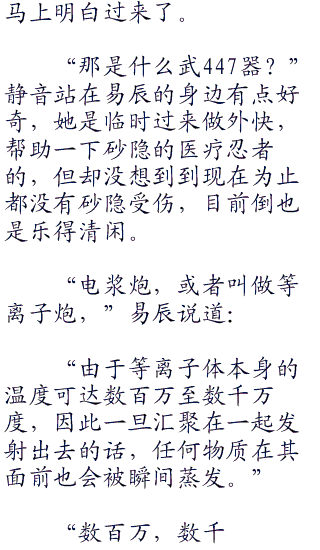 马上明白过来了。
“那是什么武447器？”
静音站在易辰的身边有点好
奇，她是临时过来做外快，
帮助一下砂隐的医疗忍者
的，但却没想到到现在为止
都没有砂隐受伤，目前倒也
是乐得清闲。
“电浆炮，或者叫做等
离子炮，”易辰说道：
“由于等离子体本身的
温度可达数百万至数千万
度，因此一旦汇聚在一起发
射出去的话，任何物质在其
面前也会被瞬间蒸发。”
“数百万，数千